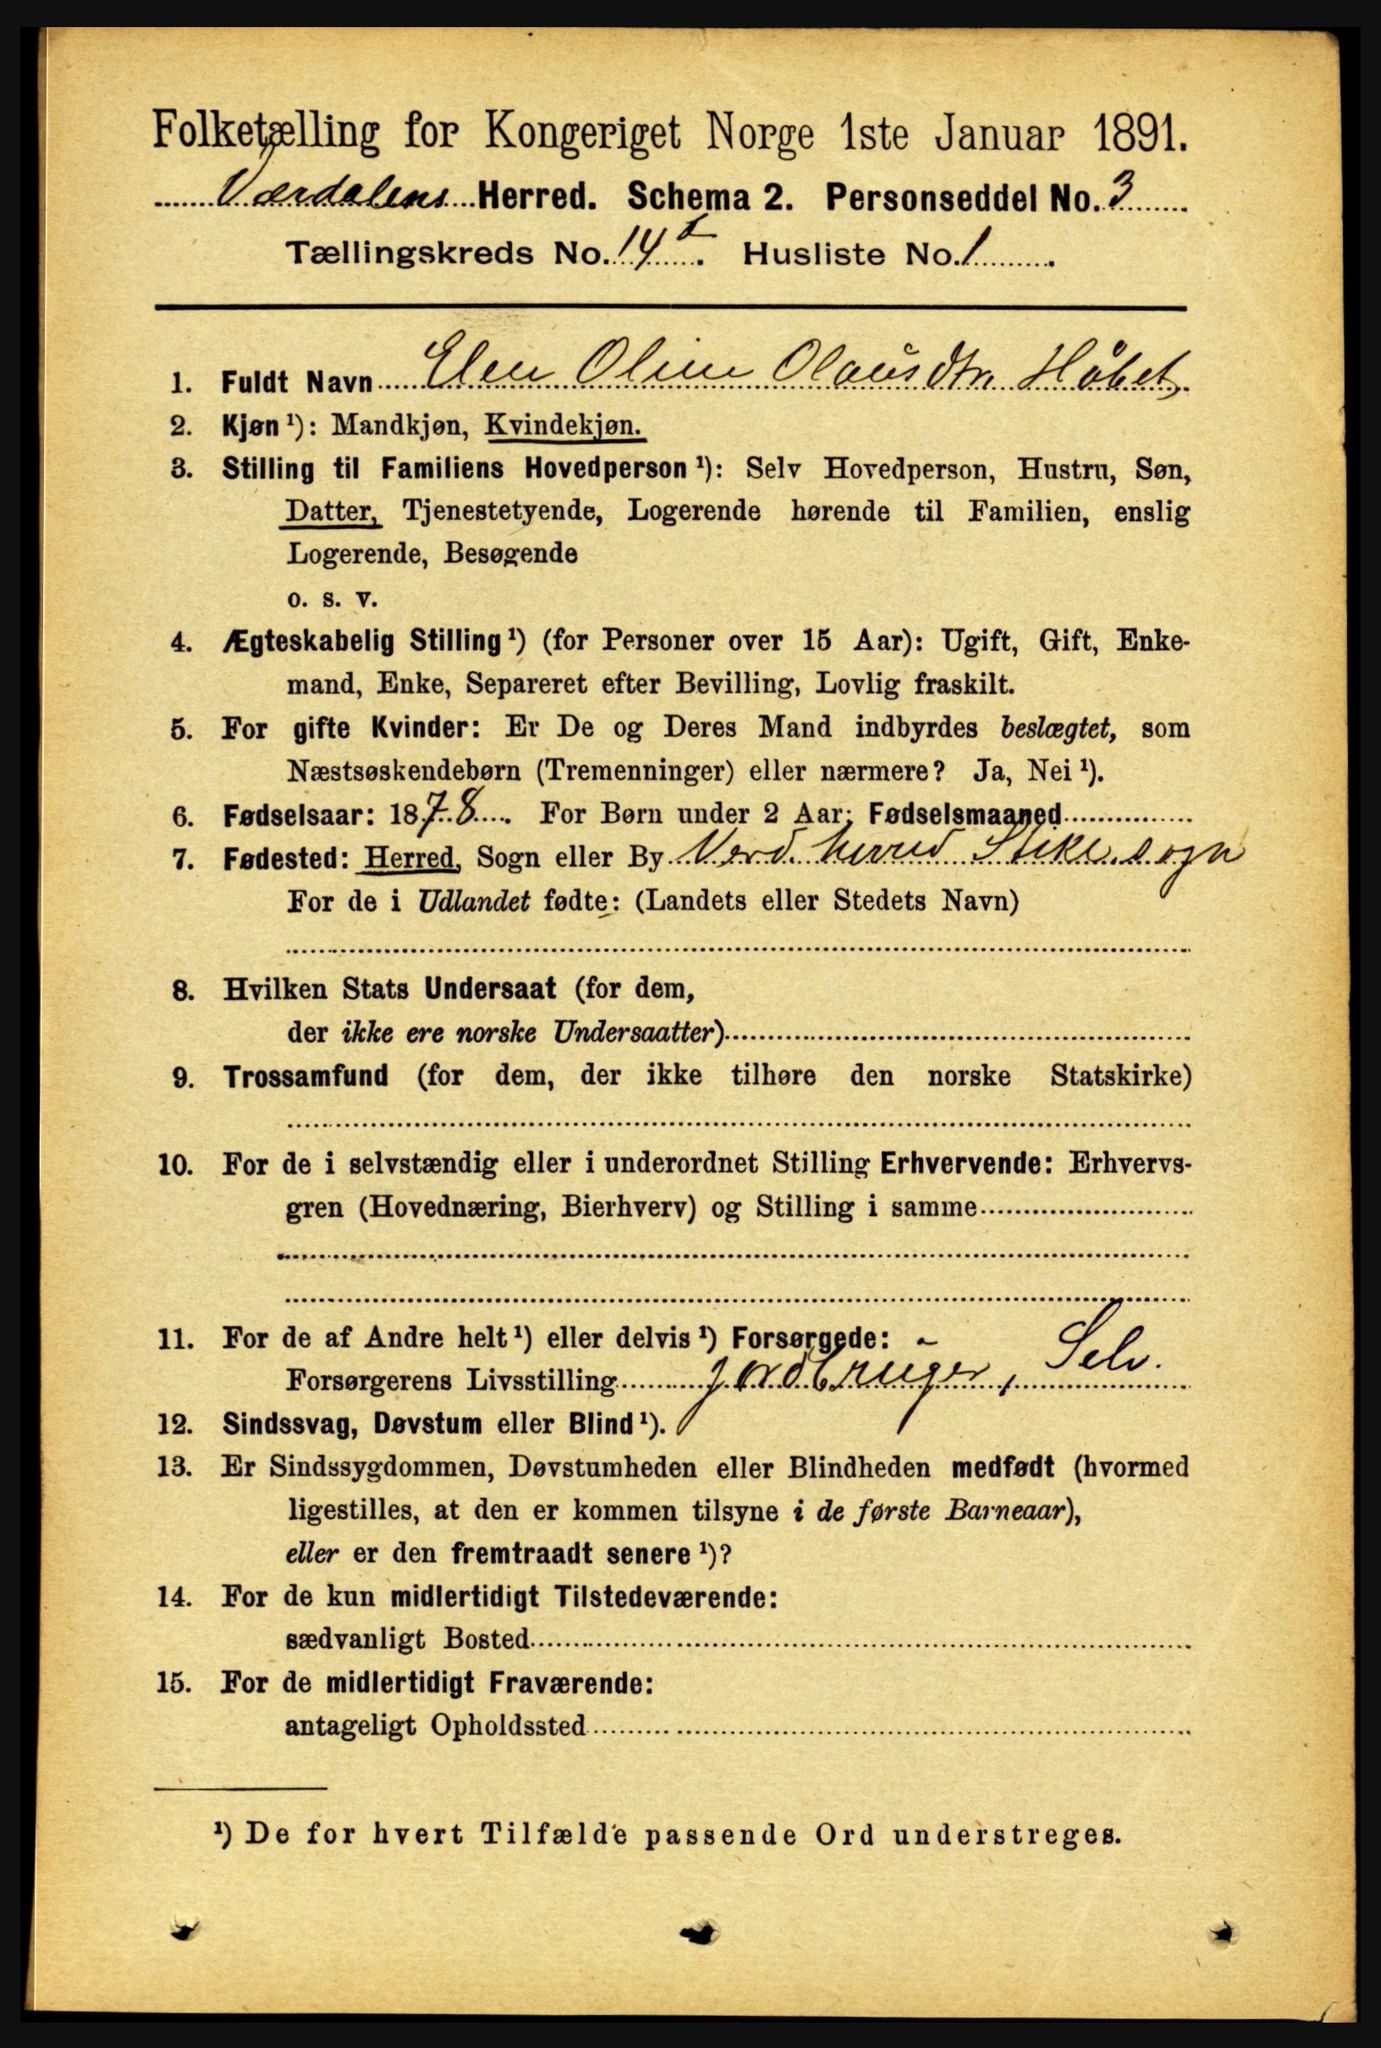 Folketælling for Kongeriget Norge 1ste Januar 1891.
Værdalens Herred. Schema 2. Personseddel No. 3
Tællingskreds No. 14 I. Husliste No. 1
1. Fuldt Navn Elen Oline Olausdtr Høbet
2. Kjøn ¹): Mandkjøn, Kvindekjøn.
3. Stilling til Familiens Hovedperson ¹): Selv Hovedperson, Hustru, Søn,
Datter, Tjenestetyende, Logerende hørende til Familien, enslig
Logerende, Besøgende
o. s. v.
4. Ægteskabelig Stilling ¹) (for Personer over 15 Aar): Ugift, Gift, Enke-
mand, Enke, Separeret efter Bevilling, Lovlig fraskilt.
5. For gifte Kvinder: Er De og Deres Mand indbyrdes beslægtet, som
Næstsøskendebørn (Tremenninger) eller nærmere? Ja, Nei ¹).
6. Fødselsaar: 1878. For Børn under 2 Aar: Fødselsmaaned
7. Fødested: Herred, Sogn eller By Verd. herred Stikl. sogn
For de i Udlandet fødte: (Landets eller Stedets Navn)
8. Hvilken Stats Undersaat (for dem,
der ikke ere norske Undersaatter)
9. Trossamfund (for dem, der ikke tilhøre den norske Statskirke)
10. For de i selvstændig eller i underordnet Stilling Erhvervende: Erhvervs-
gren (Hovednæring, Bierhverv) og Stilling i samme
11. For de af Andre helt ¹) eller delvis ¹) Forsørgede:
Forsørgerens Livsstilling Jordbruger, Selv.
12. Sindssvag, Døvstum eller Blind ¹).
13. Er Sindssygdommen, Døvstumheden eller Blindheden medfødt (hvormed
ligestilles, at den er kommen tilsyne i de første Barneaar),
eller er den fremtraadt senere ¹)?
14. For de kun midlertidigt Tilstedeværende:
sædvanligt Bosted
15. For de midlertidigt Fraværende:
antageligt Opholdssted
¹) De for hvert Tilfælde passende Ord understreges.